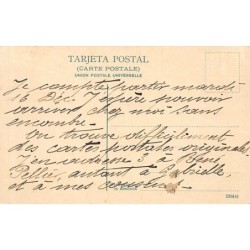 TARJETA POSTAL
(CARTE POSTALE)
UNION POSTALE UNIVERSELLE
Je compte partir mardi
16 Déc. J'espère pouvoir
arriver chez moi sans
encombre.
On trouve difficilement
des cartes postales originales
J'en adresse 3 à René
autant à Gabrielle,
et à mes cousines.